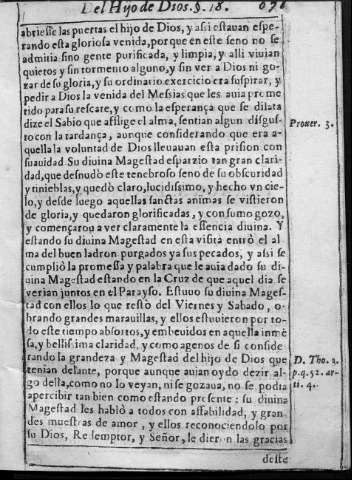 Del Hijo de Dios. §. 18.
abriesse las puertas el hijo de Dios, y assi estauan espe-
rando esta gloriosa venida, porque en este seno no se
admitia sino gente purificada, y limpia, y alli viuian
quietos y sin tormento alguno, y sin ver a Dios ni go-
zar de su gloria, y su ordinario exercicio era suspirar, y
pedir a Dios la venida del Messias que les auia prome
tido para su rescate, y como la esperança que se dilata
dize el Sabio que aflige el alma, sentian algun disgus-
to con la tardança, aunque considerando que era a-
quella la voluntad de Dios lleuauan esta prision con
suauidad Su diuina Magestad esparzio tan gran clari-
dad, que desnudò este tenebroso seno de su obscuridad
y tinieblas, y quedò claro, lucidissimo, y hecho vn cie-
lo, y desde luego aquellas sanctas animas se vistieron
de gloria, y quedaron glorificadas, y con sumo gozo,
y començarou a ver claramente la essencia diuina. Y
estando su diuina Magestad en esta visita entrò el al-
ma del buen ladron purgados ya sus pecados, y assi se
cumpliò la promessa y palabra que le auia dado su di-
uina Magestad estando en la Cruz de que aquel dia se
verian juntos en el Parayso. Estuuo su diuina Mages-
tad con ellos lo que restò del Viernes y Sabado, o-
brando grandes marauillas, y ellos estuuieron por to-
do este tiempo absortos, y embeuidos en aquella inmē
sa, y bellissima claridad, y como agenos de si conside
rando la grandeza y Magestad del hijo de Dios que
tenian delante, porque aunque auian oydo dezir al-
go della, como no lo veyan, ni se gozaua, no se podia
apercibir tan bien como estando presente: su diuina
Magestad les hablò a todos con affabilidad, y gran
des muestras de amor, y ellos reconociendolo por
su Dios, Redemptor, y Señor, le dieron las gracias
deste
Prouer. 3.
D. Tho. 3.
p. q. 52. ar-
ti. 4.